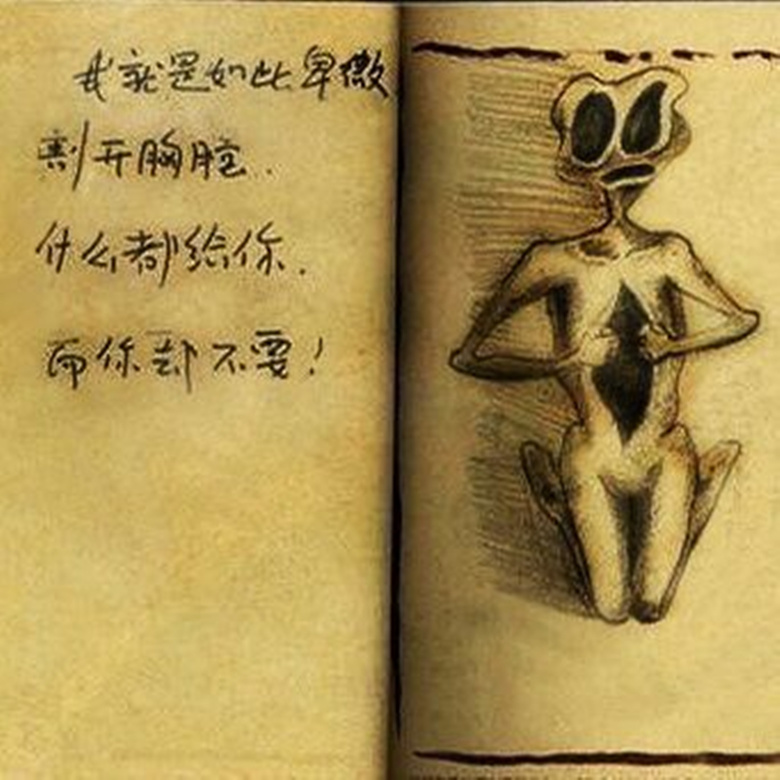 我就是如此卑微
割开胸腔.
什么都给你.
而你却不要！